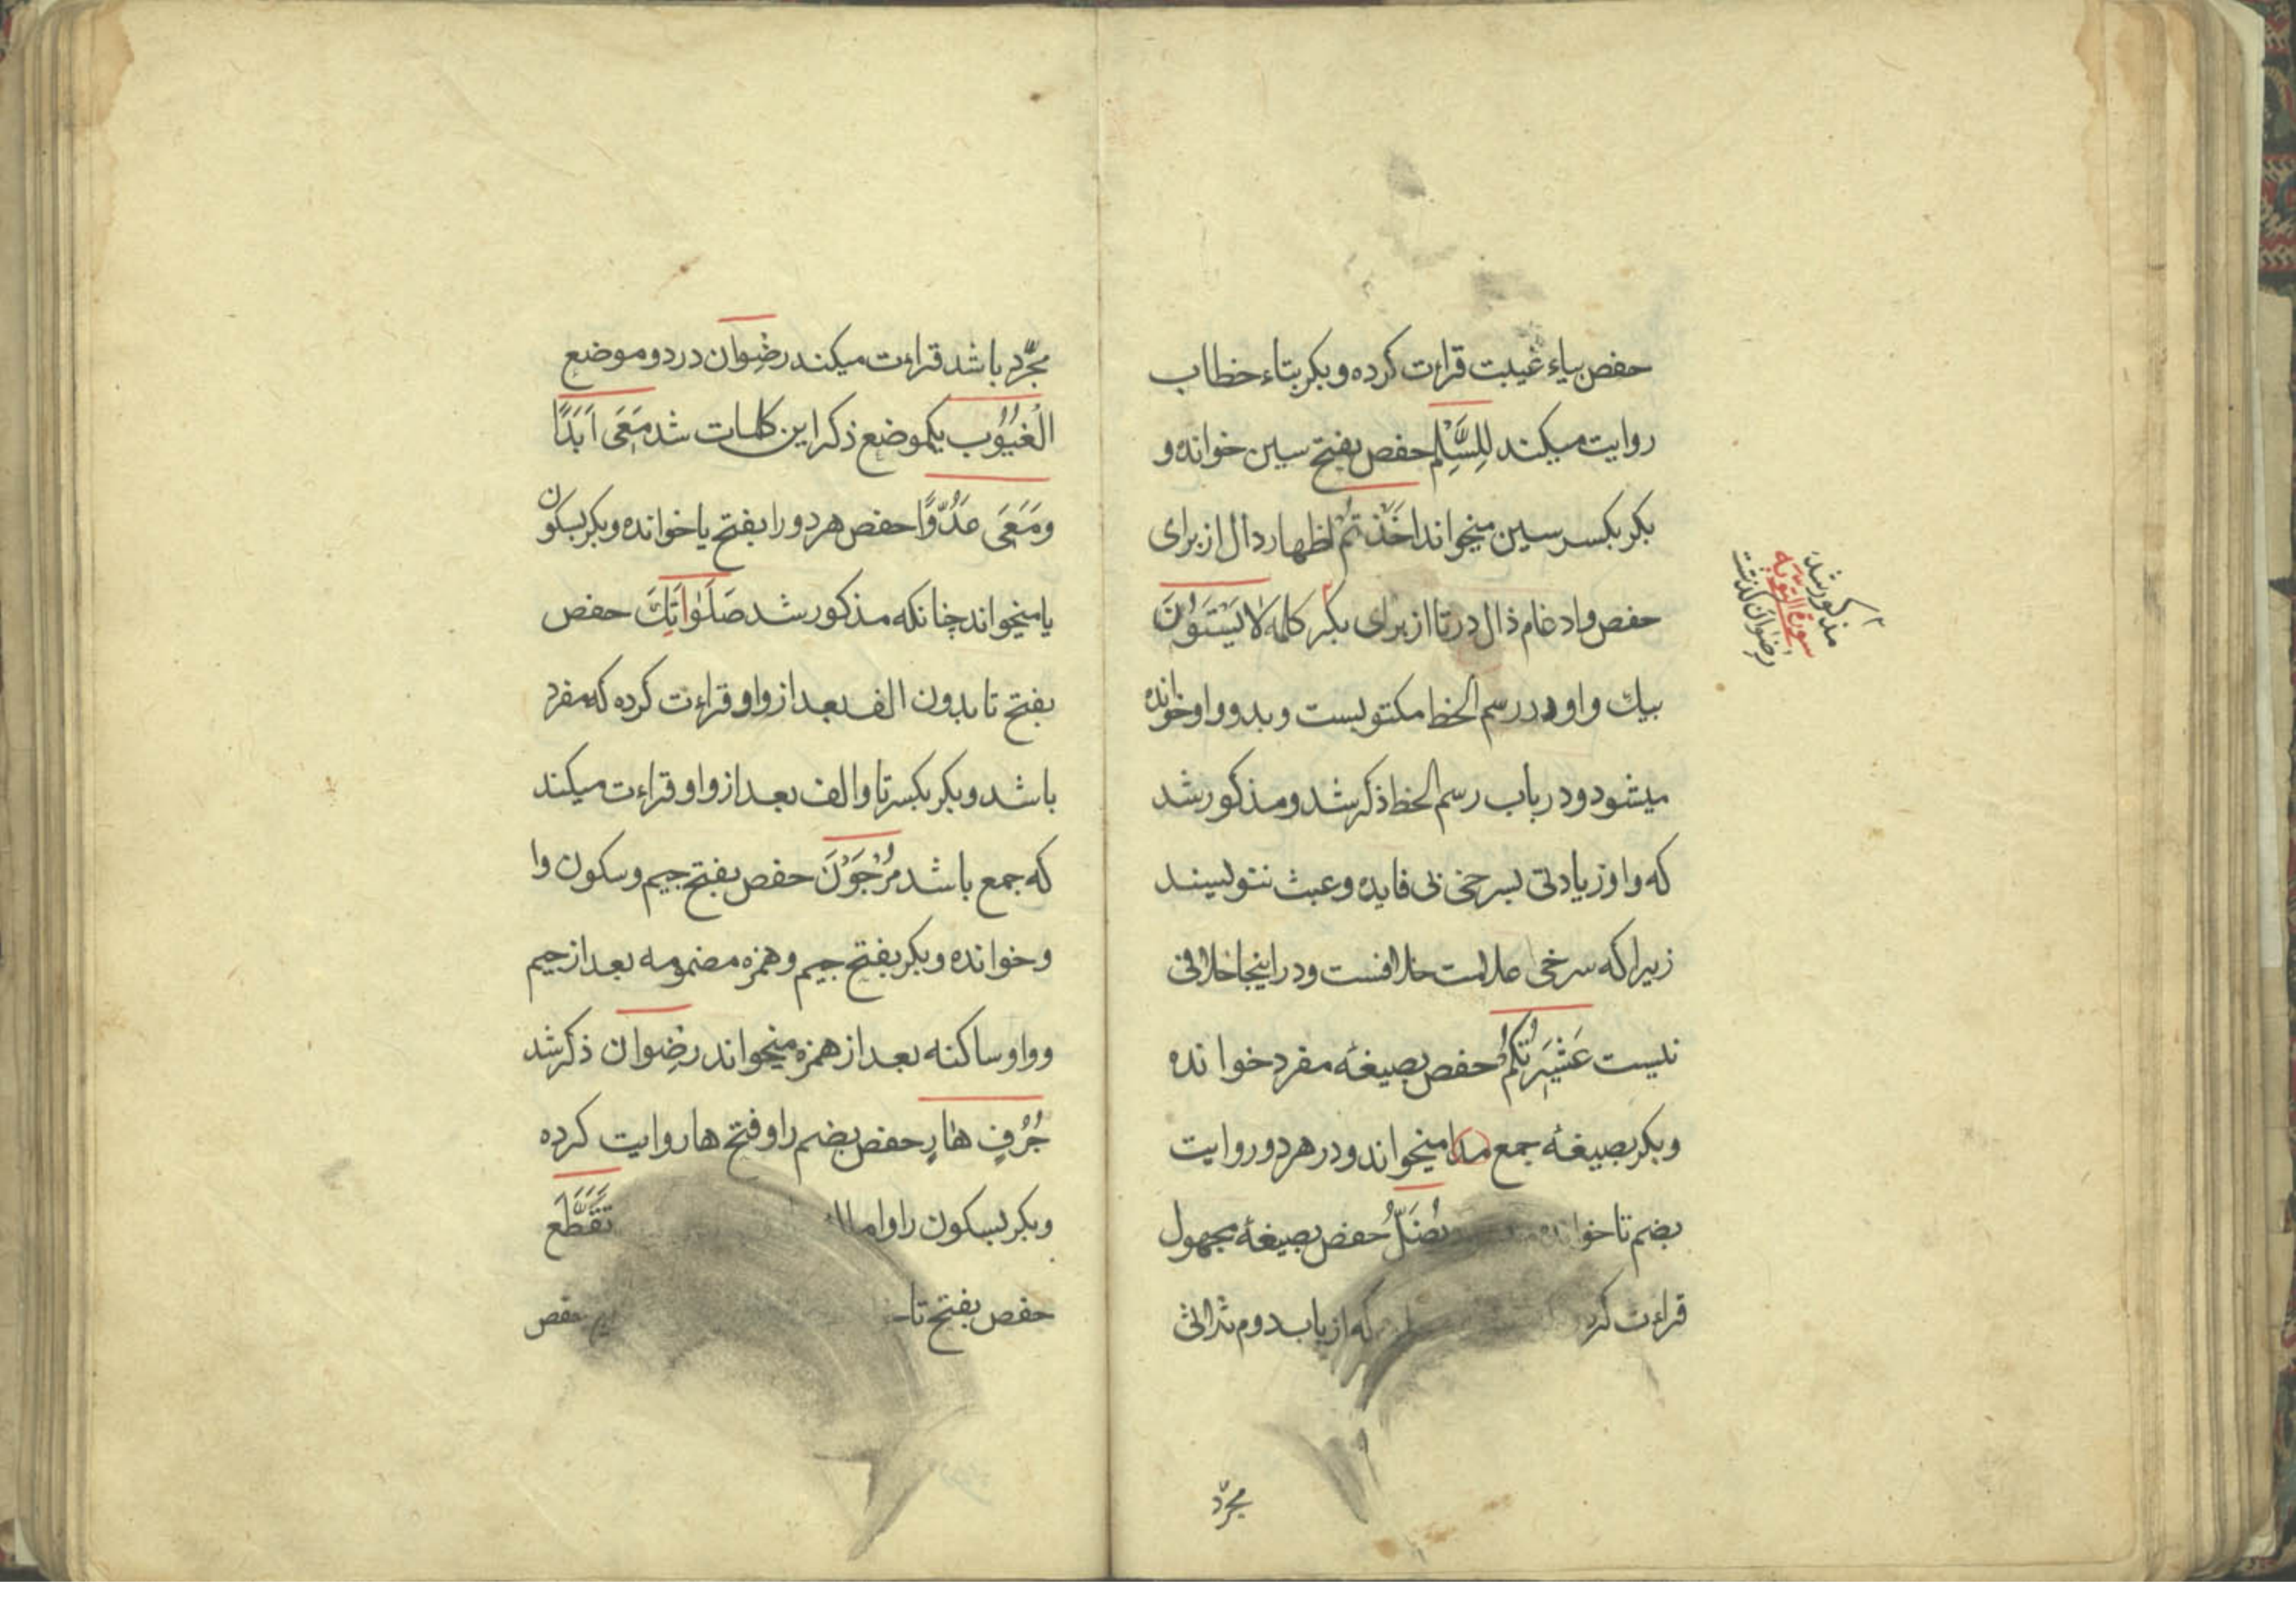 حفص بیاء غیبت قراءت کرده و بکر بتاء خطاب
روایت میکند لِلسَّلْمِ حفص بفتح سین خوانده و
بکر بکسر سین میخواند اَخَذْتُمْ اظهار دال از برای
حفص و ادغام ذال در تا از برای بکر کلمه لَا یَسْتَوُنَ
بیك واو در رسم الخط مکتوبست و بدو واو خوانده
میشود و در باب رسم الخط ذکر شد و مذکور شد
که واو زیادتی بسرخی بی فایده و عبث ننویسند
زیرا که سرخی علامت خلافست و در اینجا خلافی
نیست عَشِیْرَتُکُمْ حفص بصیغهٔ مفرد خوانده
و بکر بصیغهٔ جمع میخواند و در هر دو روایت
بضم تا خوانده یُضَلُّ حفص بصیغهٔ مجهول
قراءت کرد که از باب دوم ثلاثی
مجرّد
مذکور شد
سورة التوبه
رضوان گذشت
مجرّد باشد قراءت میکند رضِوان در دو موضع
الْغُیُوْبِ یکموضع ذکر این کلمات شد مَعَیَ اَبَدًا
وَمَعَیَ عَدُوًّا حفص هر دو را بفتح یا خوانده و بکر بسکون
یا میخواند چنانکه مذکور شد صَلَوٰاتَِكَ حفص
بفتح تا بدون الف بعد از واو قراءت کرده که مفرد
باشد و بکر بکسر تا و الف بعد از واو قراءت میکند
که جمع باشد مُرْجَوْنَ حفص بفتح جیم و سکون وا
و خوانده و بکر بفتح جیم و همزه مضمومه بعد از جیم
و واو ساکنه بعد از همزه میخواند رضِوان ذکر شد
جُرُفٍ هٰارٍ حفص بضم را و فتح ها روایت کرده
و بکر بسکون را و اماله تَقَطَّعَ
حفص بفتح تا حفص